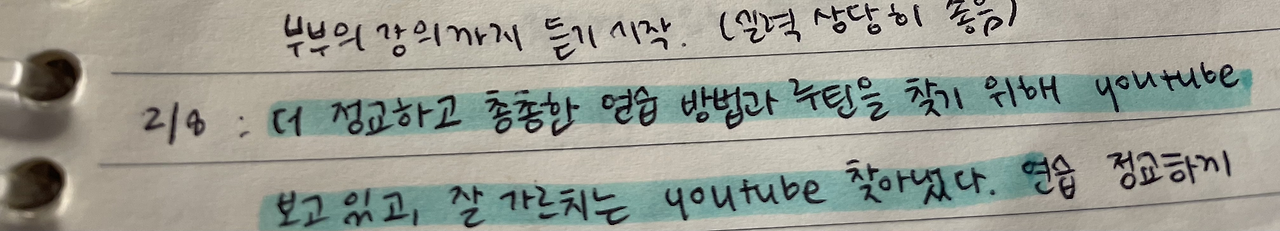 부부의 강의까지 듣기 시작. (실력 상당히 좋음)
2/8 : 더 정교하고 촘촘한 연습 방법과 루틴을 찾기 위해 youtube
보고 있고, 잘 가르치는 youtube 찾아냈다. 연습 정교하게